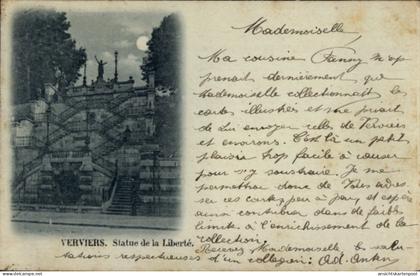 Mademoiselle,
Ma cousine Fanny m'ex-
prenait dernièrement que
Mademoiselle collectionnait les
cartes illustrées et me priait
de lui envoyer celles de Verviers
et environs. C'est là un petit
plaisir trop facile à causer
pour m'y soustraire. Je me
permettrai donc de vous adres-
ser ces cartes par à jour, et espère
ainsi contribuer dans de faibles
limites à l'enrichissement de la
collection.
Recevez Mademoiselle, les salu-
tations respectueuses d'un collégien: Ad.
VERVIERS. Statue de la Liberté.
www.ansichtskartenversand.com